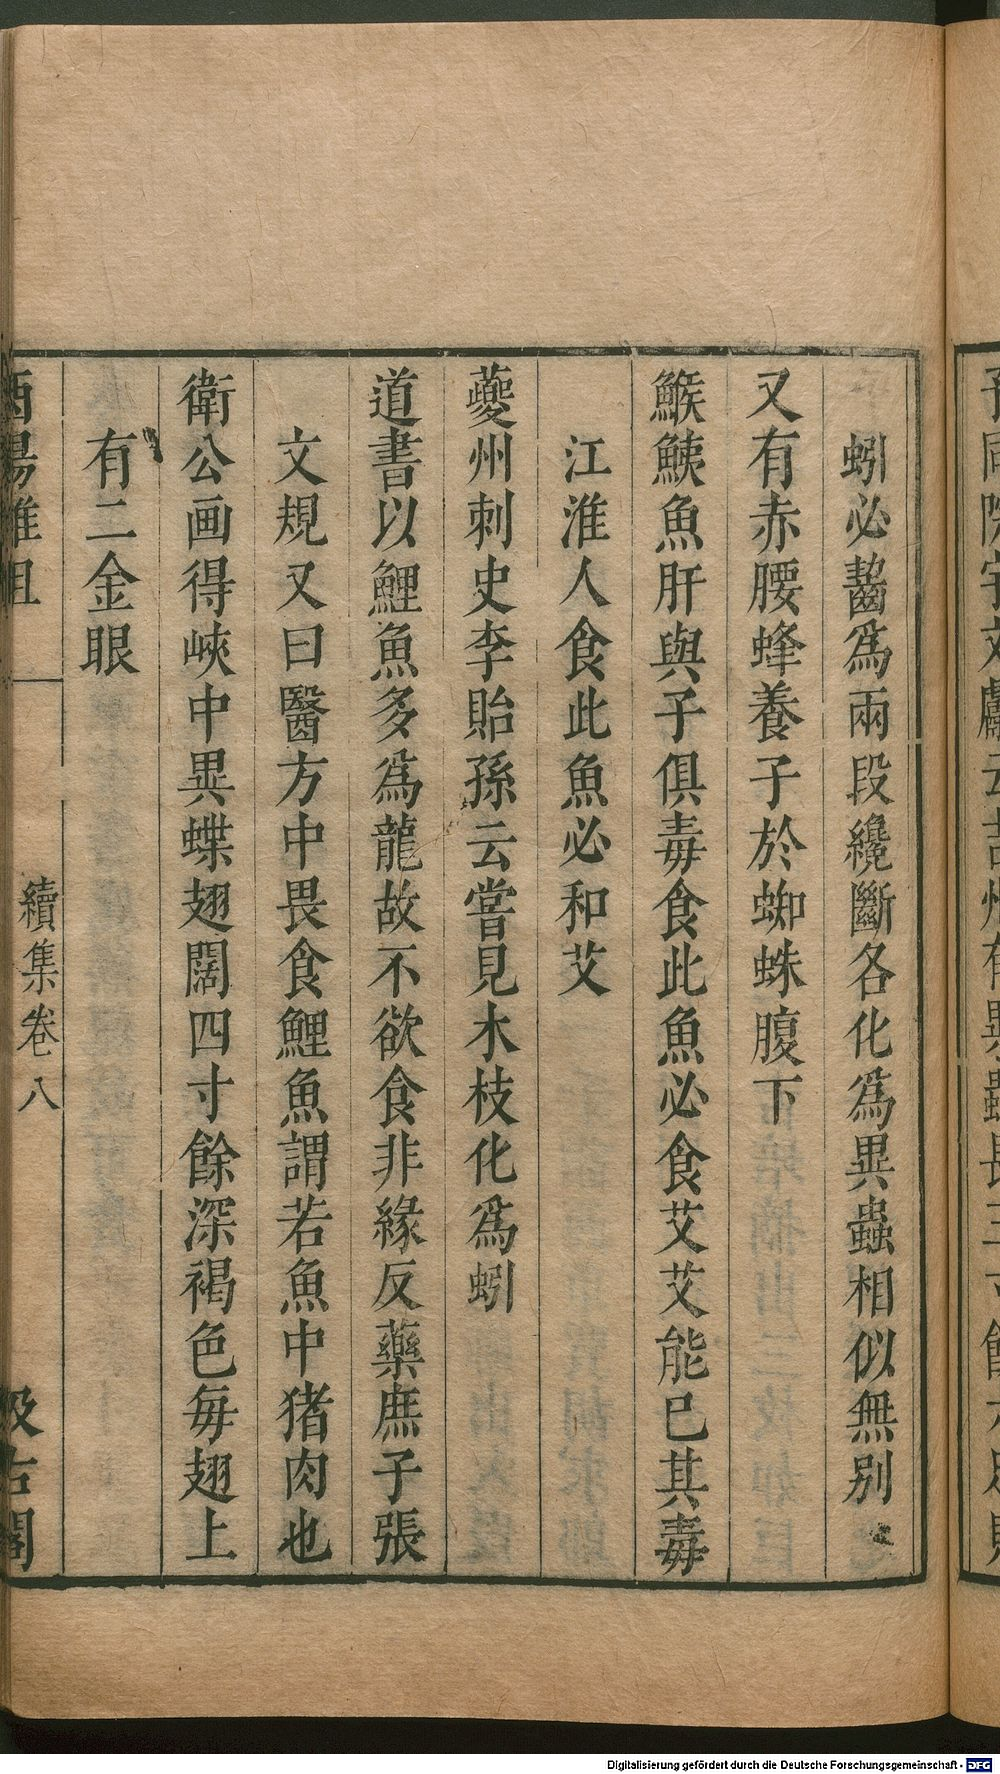 蚓必齧爲兩段纔斷各化爲異蟲相似無別
又有赤腰蜂養子於蜘蛛腹下
鯸鮧魚肝與子俱毒食此魚必食艾艾能已其毒
江淮人食此魚必和艾
夔州刺史李貽孫云嘗見木枝化爲蚓
道書以鯉魚多爲龍故不欲食非緣反藥庶子張
文規又曰醫方中畏食鯉魚謂若魚中猪肉也
衛公画得峽中異蝶翅闊四寸餘深褐色每翅上
有二金眼
酉陽雜俎 續集卷八 汲古閣
Digitalisierung gefördert durch die Deutsche Forschungsgemeinschaft - DFG